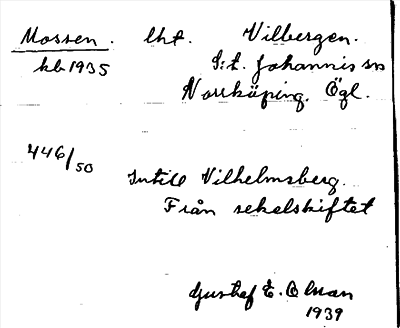 Mossen. lht. Vilbergen.
kb 1935 S:t. Johannis sn
Norrköping. Ögl.
446/50
Intill Vilhelmsberg.
Från sekelskiftet
Gustaf E. Olsson
1939